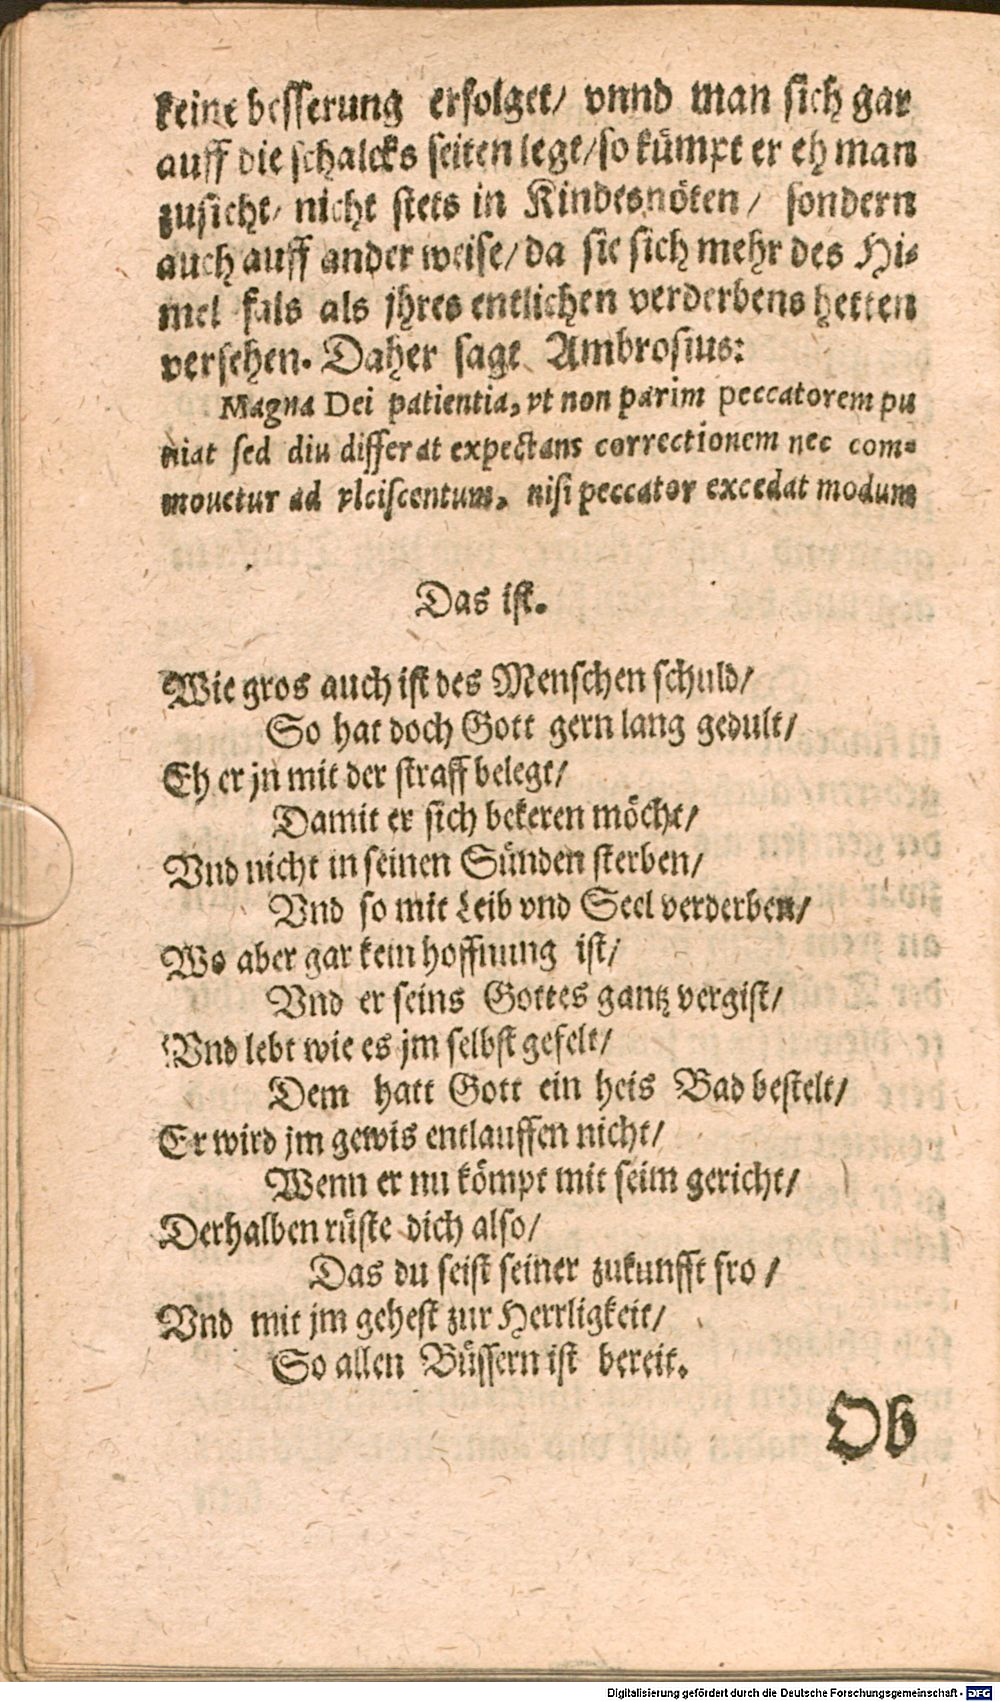 keine besserung erfolget/ vnnd man sich gar
auff die schalcks seiten legt/so kümpt er eh man
zusicht/ nicht stets in Kindesnöten/ sondern
auch auff ander weise/da sie sich mehr des Hi-
mel fals als jhres entlichen verderbens hetten
versehen. Daher sagt Ambrosius:
Magna Dei patientia, vt non parim peccatorem pu
niat sed diu differat expectans correctionem nec com-
mouetur ad vlciscentum, nisi peccator excedat modum
Das ist.
Wie gros auch ist des Menschen schuld/
So hat doch Gott gern lang gedult/
Eh er jn mit der straff belegt/
Damit er sich bekeren möcht/
Vnd nicht in seinen Sünden sterben/
Vnd so mit Leib vnd Seel verderben/
Wo aber gar kein hoffnung ist/
Vnd er seins Gottes gantz vergist/
Vnd lebt wie es jm selbst gefelt/
Dem hatt Gott ein heis Bad bestelt/
Er wird jm gewis entlauffen nicht/
Wenn er nu kömpt mit seim gericht/
Derhalben rüste dich also/
Das du seist seiner zukunfft fro/
Vnd mit jm gehest zur Herrligkeit/
So allen Büssern ist bereit.
Ob
Digitalisierung gefördert durch die Deutsche Forschungsgemeinschaft - DFG